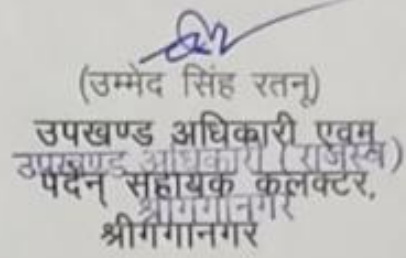 (उम्मेद सिंह रतनू)
उपखण्ड अधिकारी एवम्
उपखण्ड अधिकारी (राजस्व)
पदेन् सहायक कलक्टर,
श्रीगंगानगर
श्रीगंगानगर